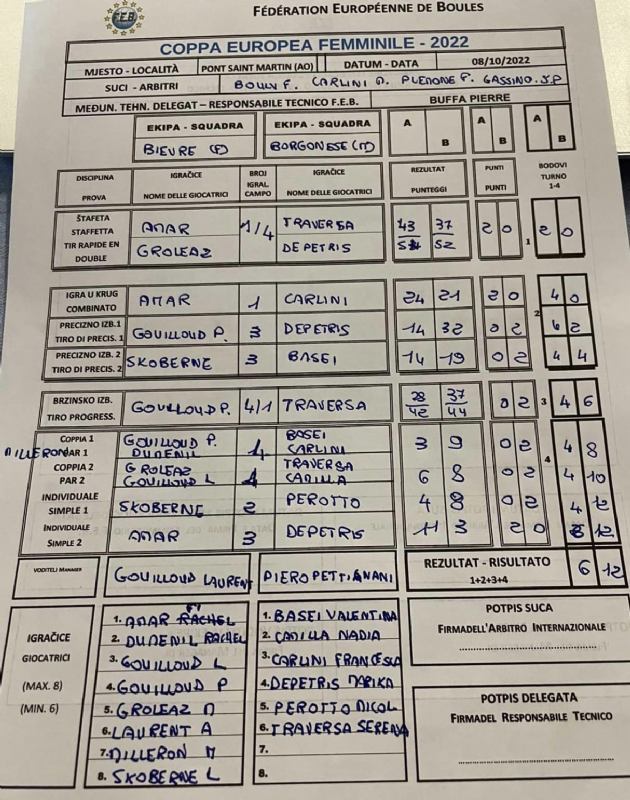 F.E.B.
FÉDÉRATION EUROPÉENNE DE BOULES
COPPA EUROPEA FEMMINILE - 2022
MJESTO - LOCALITÀ PONT SAINT MARTIN (AO) DATUM - DATA 08/10/2022
SUCI - ARBITRI BOULY F. CARLINI A. PLEDONE F. GASSINO J.P
MEĐUN. TEHN. DELEGAT – RESPONSABILE TECNICO F.E.B. BUFFA PIERRE
EKIPA - SQUADRA EKIPA - SQUADRA A B A B A B
BIEVRE (F) BORGONESE (IT)
DISCIPLINA IGRAČICE BROJ IGRAČICE REZULTAT PUNTI BODOVI
PROVA NOME DELLE GIOCATRICI IGRAL. CAMPO NOME DELLE GIOCATRICI PUNTEGGI PUNTI TURNO 1-4
ŠTAFETA STAFFETTA AMAR 1/4 TRAVERSA 43 37 2 0 1 2 0
TIR RAPIDE EN DOUBLE GROLEAZ DEPETRIS 54 52
IGRA U KRUG COMBINATO AMAR 1 CARLINI 24 21 2 0 4 0
PRECIZNO IZB.1 TIRO DI PRECIS. 1 GOUILLOUD P. 3 DEPETRIS 14 32 0 2 2 2
PRECIZNO IZB. 2 TIRO DI PRECIS. 2 SKOBERNE 3 BASEI 14 19 0 2 4 4
BRZINSKO IZB. TIRO PROGRESS. GOUILLOUD P. 4/1 TRAVERSA 28 37 0 2 3 4 6
42 44
COPPIA 1 GOUILLOUD P. BASEI
MILLERON PAR 1 DUMENIL CARLINI 3 9 0 2 4 8
COPPIA 2 GROLEAZ TRAVERSA 4
PAR 2 GOUILLOUD L CADILLA 6 8 0 2 4 10
INDIVIDUALE SIMPLE 1 SKOBERNE 2 PEROTTO 4 8 0 2 4 12
INDIVIDUALE SIMPLE 2 AMAR 3 DEPETRIS 11 3 2 0 12
VODITELJ MANAGER GOUILLOUD LAURENT PIERO PETTIGNANI REZULTAT - RISULTATO 1+2+3+4 6 12
IGRAČICE
GIOCATRICI
(MAX. 8)
(MIN. 6)
1. AMAR
2. DUMENIL RACHEL
3. GOUILLOUD L
4. GOUILLOUD P
5. GROLEAZ M
6. LAURENT A
7. MILLERON M
8. SKOBERNE L
1. BASEI VALENTINA
2. CADILLA NADIA
3. CARLINI FRANCESCA
4. DEPETRIS MARIKA
5. PEROTTO NICOL
6. TRAVERSA SERENA
7.
8.
POTPIS SUCA
FIRMADELL'ARBITRO INTERNAZIONALE
POTPIS DELEGATA
FIRMADEL RESPONSABILE TECNICO